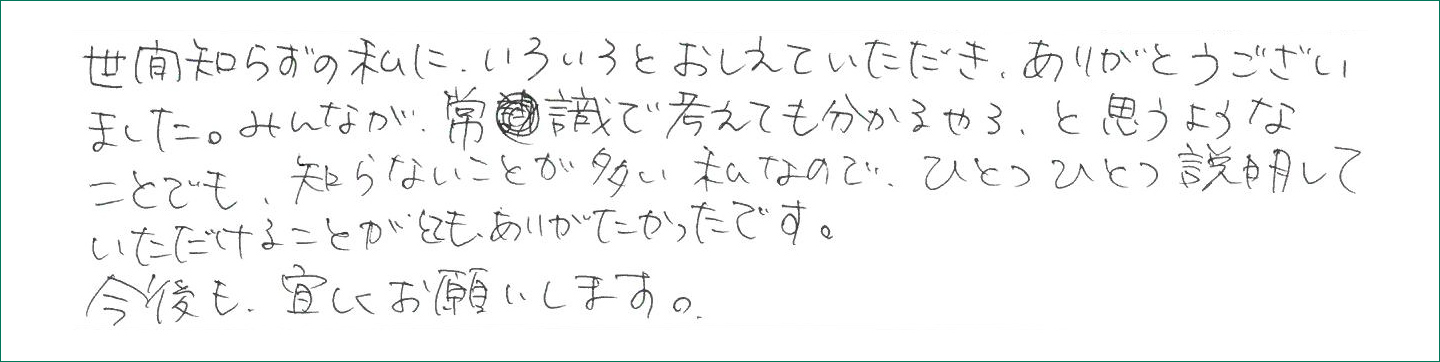 世間知らずの私に、いろいろとおしえていただき、ありがとうござい
ました。みんなが、常識で考えても分かるやろ、と思うような
ことでも、知らないことが多い私なので、ひとつひとつ説明して
いただけることがとても、ありがたかったです。
今後も、宜しくお願いします。